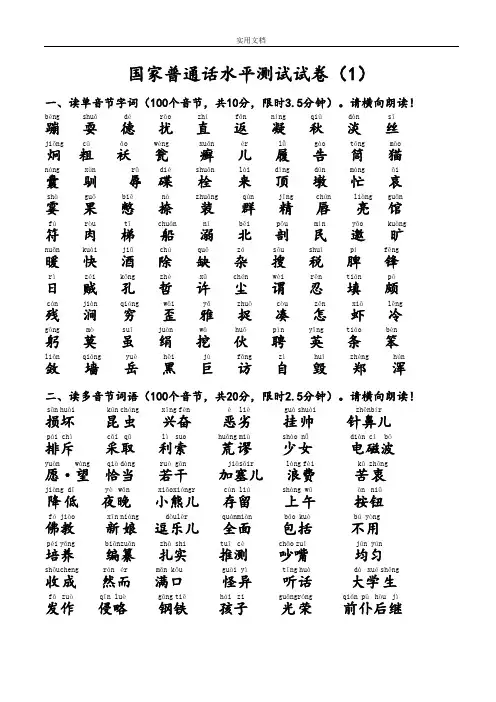 实用文档
国家普通话水平测试试卷（1）
一、读单音节字词（100个音节，共10分，限时3.5分钟）。请横向朗读！
bèng shuǎ dé rǎo zhí fǎn níng qiū dàn sī
蹦 耍 德 扰 直 返 凝 秋 淡 丝
jiǒng cū ǎo wèng xuǎn ér lǚ gào tǒng māo
炯 粗 袄 瓮 癣 儿 履 告 筒 猫
náng xùn rǔ dié shuān lái dǐng dūn máng āi
囊 驯 辱 碟 栓 来 顶 墩 忙 哀
shà guǒ biē nà zhuāng qún jīng chún liàng guǎn
霎 果 憋 捺 装 群 精 唇 亮 馆
fú ròu tī chuán nì běi pōu mín yāo kuàng
符 肉 梯 船 溺 北 剖 民 邀 旷
nuǎn kuài jiǔ chú quē zá sōu shuì pí fēng
暖 快 酒 除 缺 杂 搜 税 脾 锋
rì zéi kǒng zhé xǔ chén wèi rěn tián pō
日 贼 孔 哲 许 尘 谓 忍 填 颇
cán jiàn qióng wāi yǎ zhuō còu zěn xiā lěng
残 涧 穷 歪 雅 捉 凑 怎 虾 冷
gōng mò suī juàn wā huǒ pìn yīng tiáo bèn
躬 莫 虽 绢 挖 伙 聘 英 条 笨
liǎn qiáng yuè hēi jù fǎng zì huǐ zhèng hún
敛 墙 岳 黑 巨 访 自 毁 郑 浑
二、读多音节词语（100个音节，共20分，限时2.5分钟）。请横向朗读！
sǔn huài kūn chóng xīng fèn è liè guà shuài zhēnbír
损坏 昆虫 兴奋 恶劣 挂帅 针鼻儿
pái chì cǎi qǔ lì suo huāng miù shào nǚ diàn cí bō
排斥 采取 利索 荒谬 少女 电磁波
yuàn wàng qià dàng ruò gān jiāsāir làng fèi kǔ zhōng
愿·望 恰当 若干 加塞儿 浪费 苦衷
jiàng dī yè wǎn xiǎoxióngr cún liú shàng wǔ àn niǔ
降低 夜晚 小熊儿 存留 上午 按钮
fó jiào xīn niáng dòulèr quánmiàn bāo kuò bù yòng
佛教 新娘 逗乐儿 全面 包括 不用
péi yǎng biānzuǎn zhā shi tuī cè chǎo zuǐ jūn yún
培养 编纂 扎实 推测 吵嘴 均匀
shōucheng rán ér mǎn kǒu guài yì tīng huà dà xué shēng
收成 然而 满口 怪异 听话 大学生
fā zuò qīn lüè gāng tiě hái zi guāngróng qián pū hòu jì
发作 侵略 钢铁 孩子 光荣 前仆后继